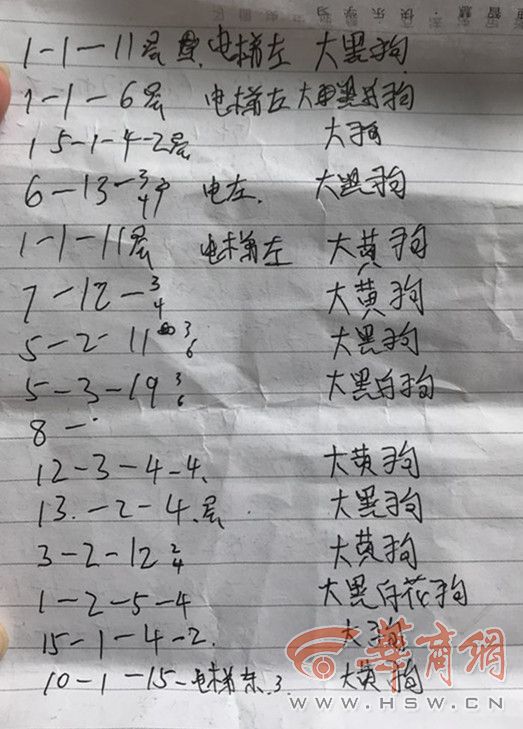 1-1-11层 电梯左 大黑狗
1-1-6层 电梯左 大黑狗
15-1-4-2层 大狗
6-13-3 4户 电左. 大黑狗
1-1-11层 电梯左 大黄狗
7-12-3 4 大黄狗
5-2-11 3 6 大黑狗
5-3-19 3 6 大黑白狗
8-
12-3-4-4. 大黄狗
13.-2-4.层 大黑狗
3-2-12 2 4 大黄狗
1-2-5-4 大黑白花狗
15-1-4-2. 大狗
10-1-15-电梯东.3. 大黄狗
華商網
WWW.HSW.CN